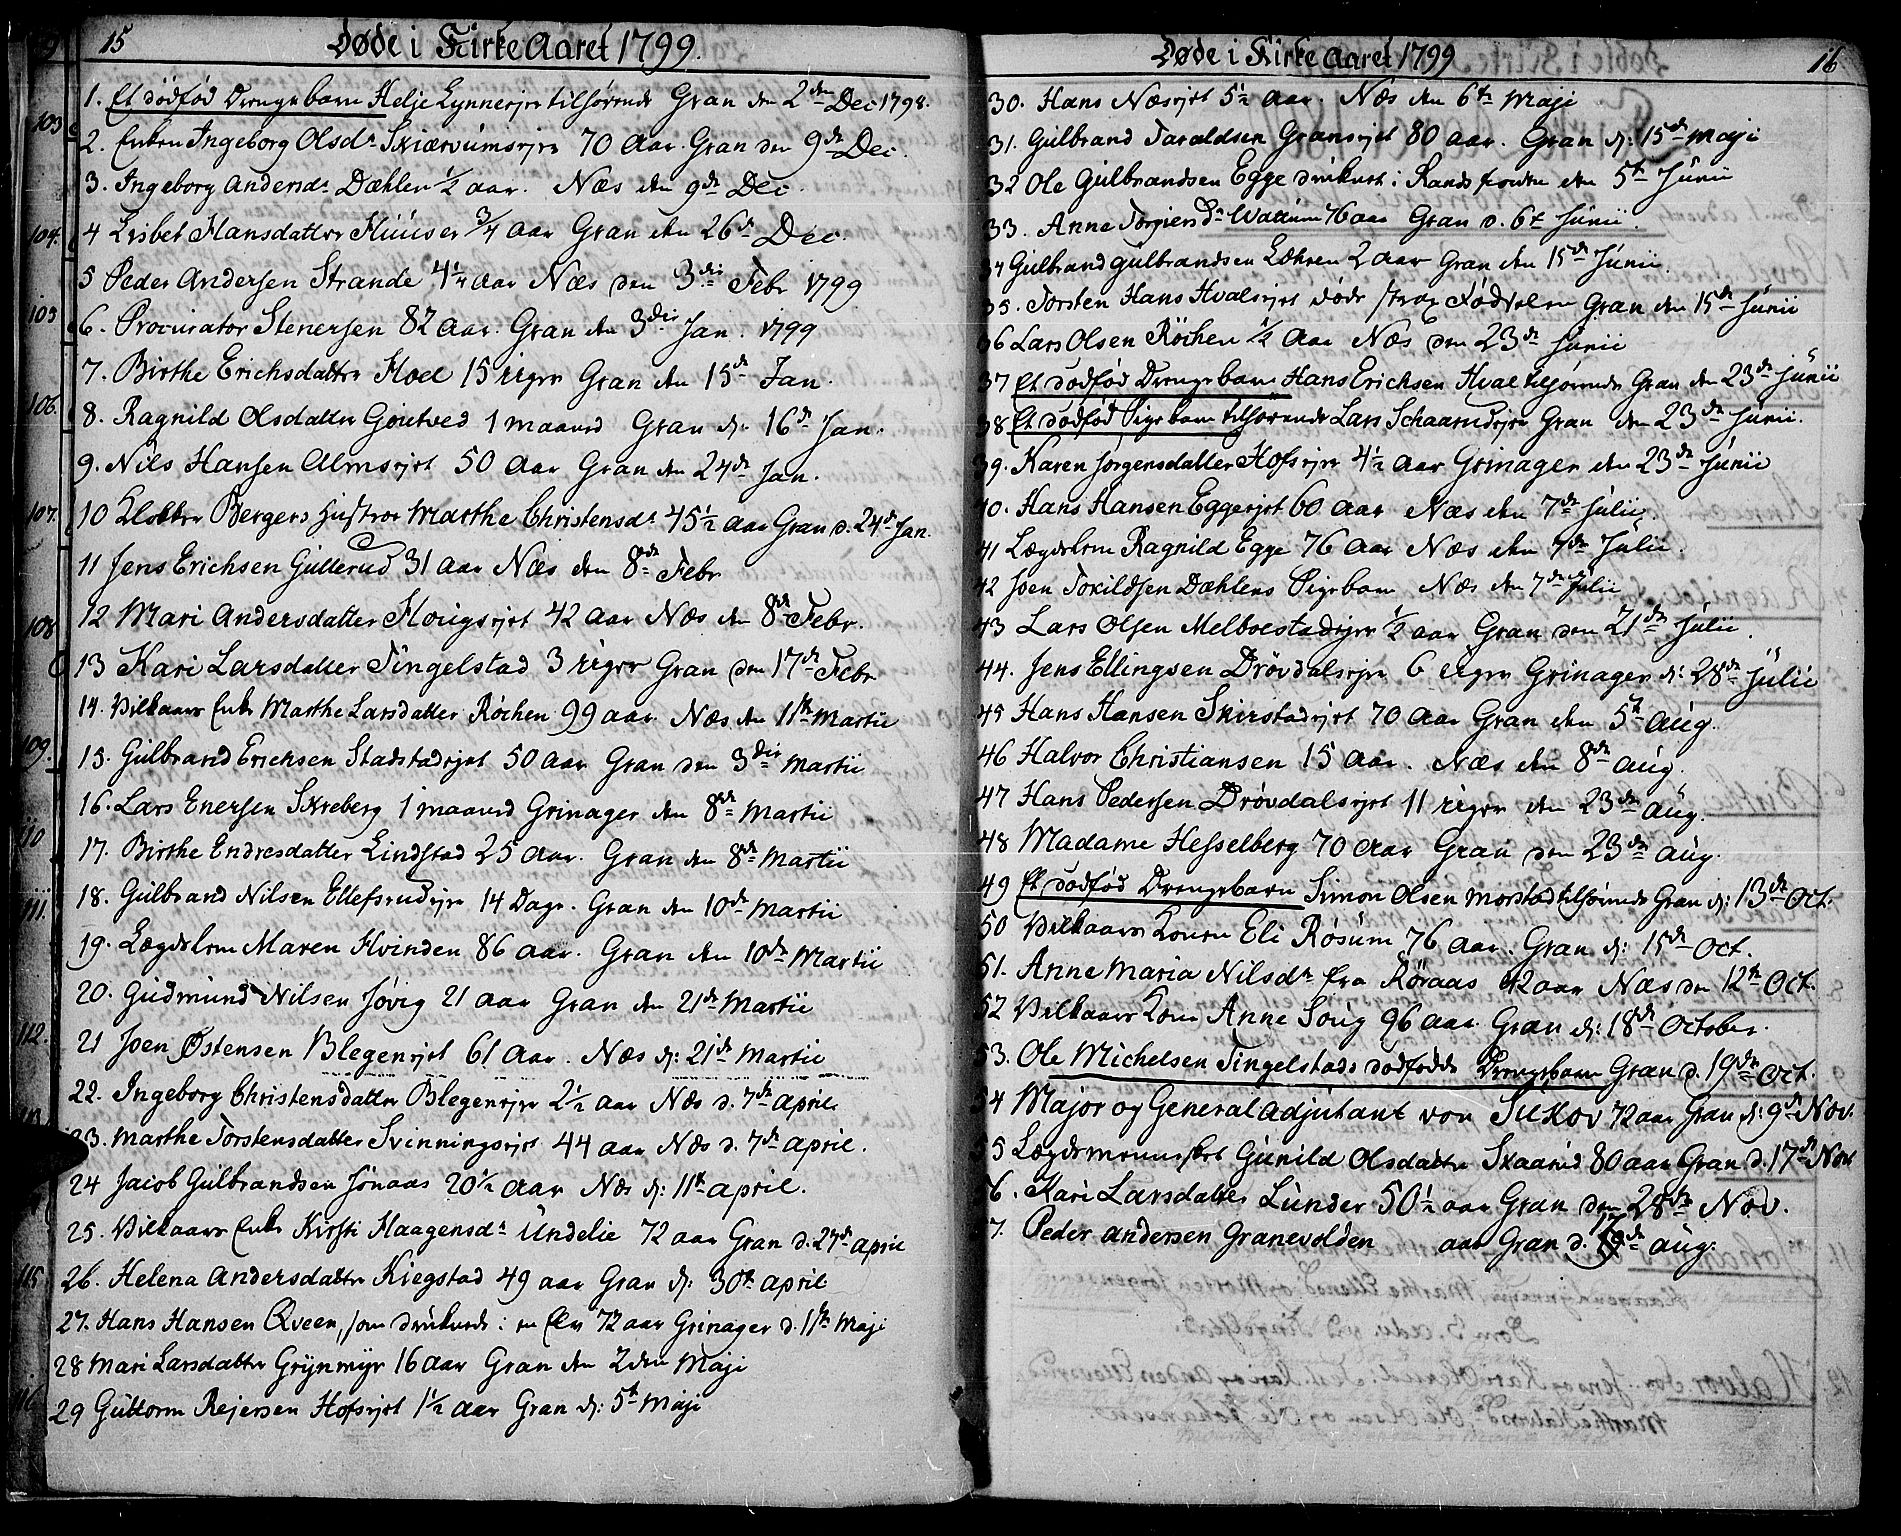 15 Døde i Kirke Aaret 1799.
1. Et dödfød Drengebarn Helje Lynneeje tilhørende Gran den 2den Dec 1798.
2. Enken Ingeborg Olsdr Skiærvumseje 70 Aar. Gran den 9de Dec.
3. Ingeborg Andersdr Dæhlen ½ aar. Næs den 9de Dec.
4 Lisbet Hansdatter Hüüser ¾ Aar Gran den 26de Dec.
5 Peder Andersen Strande 4¼ Aar Næs den 3die Febr 1799
6. Procurator Stenersen 82 Aar. Gran den 3die Jan. 1799
7. Birthe Erichsdatter Hoel 15 uger Gran den 15de Jan.
8. Ragnild Olsdatter Goutved 1 maaned Gran d: 16de Jan.
9. Nils Hansen Almsejet 50 Aar Gran den 24de Jan.
10 Klokker Bergers Hustroe Marthe Christensdr 45½ Aar Gran d. 24de Jan.
11 Jens Erichsen Gullerud 31 Aar Næs den 8de Febr
12 Mari Andersdatter Hougsejet 42 Aar Næs den 8de Febr.
13 Kari Larsdatter Tingelstad 3 uger Gran den 17de Febr
14. Vilkaars Enke Marthe Larsdatter Røchen 99 aar. Næs den 11te Martii
15. Gulbrand Erichsen Stadstadejet 50 Aar Gran den 3die Martii
16. Lars Enersen Skreberg 1 maaned Grinager den 8de Martii
17. Birthe Endresdatter Lindstad 25 Aar. Gran den 8de Martii
18. Gulbrand Nilsen Ellefsrudeje 14 Dage. Gran den 10de Martii
19. Lægdslem Maren Hvinden 86 aar. Gran den 10de Martii
20. Gudmund Nilsen Jøvig 21 aar Gran den 21de Martii
21 Joen Østensen Blegenejet 61 Aar. Næs d: 21de Martii
22. Ingeborg Christensdatter Blegeneje 2½ aar Næs d. 7de April
23. Marthe Torstensdatter Svinningsejet 44 aar Næs d. 7de April.
24 Jacob Gulbrandsen Jonaas 20½ Aar Næs d: 11te April.
25. Vilkaars Enke Kirsti Haagensdr Undelie 72 aar Gran d. 27de April
26. Helena Andersdatter Kiegstad 49 aar Gran d: 30te April
27. Hans Hansen Qveen, som druknede i en Elv 72 aar Grinager d. 11te Maji
28 Mari Larsdatter Grynmyr 16 aar Gran den 2den Maji
29 Guttorm Rejersen Hofsejet 1½ Aar Gran d: 5te Maji
103
104.
105
106.
107.
108
109.
110
111.
112.
115
116
Døde i Kirke Aaret 1799 16
30. Hans Næsejet 5½ aar. Næs den 6te Maji
31. Gulbrand Taraldsen Gransejet 80 aar. Gran d: 15de Maji
32 Ole Gulbrandsen Egge druknet i Rands Fiorden den 5te Junii
33. Anne Torgiersdr Wattum 76 aar Gran d. 6te Junii.
34 Gulbrand Gulbrandsen Løkren 2 aar Gran den 15de Junii.
35. Torsten Hans Hvalsejet døde strax Fødselen Gran den 15de Junii
36 Lars Olsen Röchen ½ Aar Næs den 23de Junii
37 Et dödfød Drengebarn Hans Erichsen Hval tilhørende Gran den 23de Junii
38 Et dødfød Pigebarn tilhörende Lars Schaarudeje Gran den 23de Junii.
39. Karen Jørgensdatter Hofseje 4½ Aar Grinager den 23de Junii
40. Hans Hansen Eggeejet 60 aar Næs den 7de Julii.
41 Lægdslem Ragnild Egge 76 Aar Næs den 7de Julii.
42 Joen Torildsen Dæhlens Pigebarn Næs den 7de Julii
43 Lars Olsen Melboestadeje ½ aar Gran den 21de Julii.
44. Jens Ellingsen Drövdalseje 6 uger Grinager d: 28de Julii
45 Hans Hansen Skierstadejet 70 aar Gran den 5te Aug.
46 Halvor Christiansen 15 aar. Næs den 8de Aug.
47 Hans Pedersen Drövdalsejet 11 uger den 23de Aug.
48 Madame Hesselberg 70 Aar Gran den 23de Aug.
49 Et dødfød Drengebarn Simon Olsen Morstad tilhørende Gran d: 13de Oct.
50 Vilkaars Konen Eli Røsum 76 aar. Gran d: 15de Oct.
51. Anne Maria Nilsdr fra Röraas 42 aar Næs den 12te Oct.
52 Vilkaars Kone Anne Soug 96 aar Gran d: 18de October.
53. Ole Michelsen Tingelstads dødfødde Drengebarn Gran d. 19de Oct.
54 Major og General Adjutant von Sukov 72 aar Gran d: 9de Nov.
55 Lægdsmennesket Gunild Olsdatter Skaarud 80 aar Gran d. 17de Nov
6. Kari Larsdatter Lunder 50½ aar Gran den 28de Nov.
7. Peder Andersen Granevolden aar Gran d. 17de Aug: